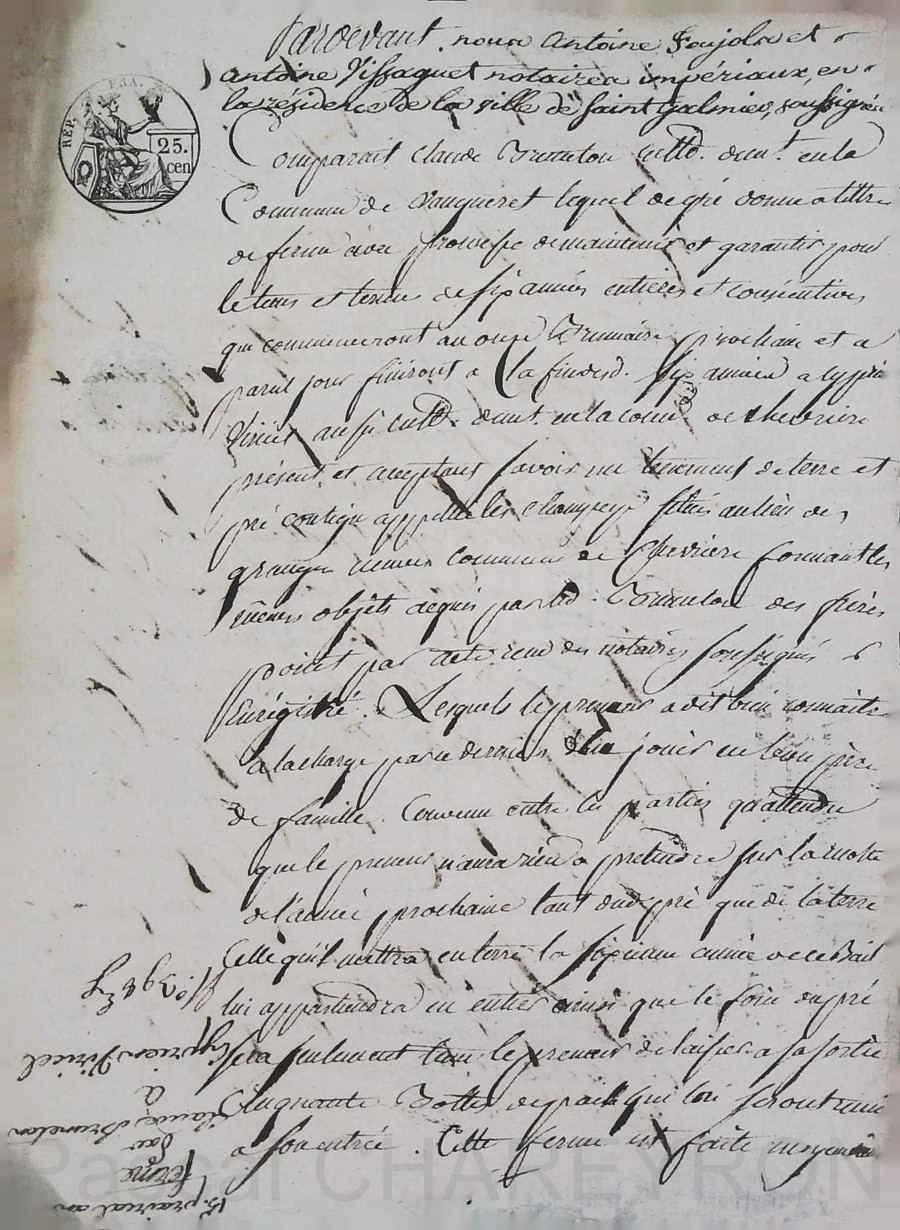 Pardevant nous Antoine Foujols et
Antoine Vissaguet notaires impériaux, en
la résidence de la ville de Saint Galmier, soussignés
Comparait Claude Brunelon cultr. demt. en la
Commune de lequel de gré donne a titre
de ferme avec promesse de maintenir et garantir pour
le tems et terme de six années entieres et consécutives
qui commenceront au onze Brumaire prochain et a
pareil jour finiront a la fin desd. six années a Cyprien
Viricel aussi cultr. demt. en la come de Chevriere
présent et acceptant savoir un tenement de terre et
pré contigu appellé les situés au lieu des
granges commune de Chevriere formant les
mêmes objets acquis par led. Brunelon des frères
poncet par acte reçu des notaires soussignés
Enrégistré. Lesquels le preneur a dit bien connaitre
a la charge par ce dernier d'en jouir en bon père
de famille. Convenu entre les parties qu'attendu
que le preneur n'aura rien a pretendre sur la récolte
de l'année prochaine tant du pré que de la terre
Celle qu'il mettra en terre la sixieme année de ce Bail
lui appartiendra en entier ainsi que le foin du pré
sera seulement tenu le preneur de laisser a sa sortie
Cinquante Bottes de paille qui lui seront remis
a son entrée. Cette ferme est faite moyennant
REP. FRA.
25.
cen
No. 398
Cyprien Viricel
a
Claude Brunelon
par
ferme
prairial an
Pascal CHAREYRON